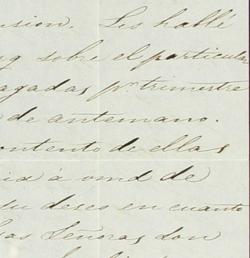 usion. Les hallé
sobre el particular
agadas pr. trimestre
de antemano.
ontento de ellas
á vmd de
su deseo en cuanto
Señoras, son